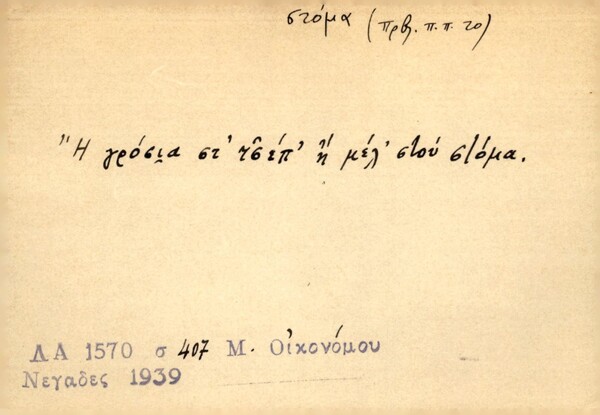 στόμα (πρβ. π.π. το)
Ἢ γρόσι̯α στ' τσ̑έπ' ἢ μέλ' στοὺ στόμα.
ΛΑ 1570 σ 407 Μ. Οἰκονόμου
Νεγαδες 1939